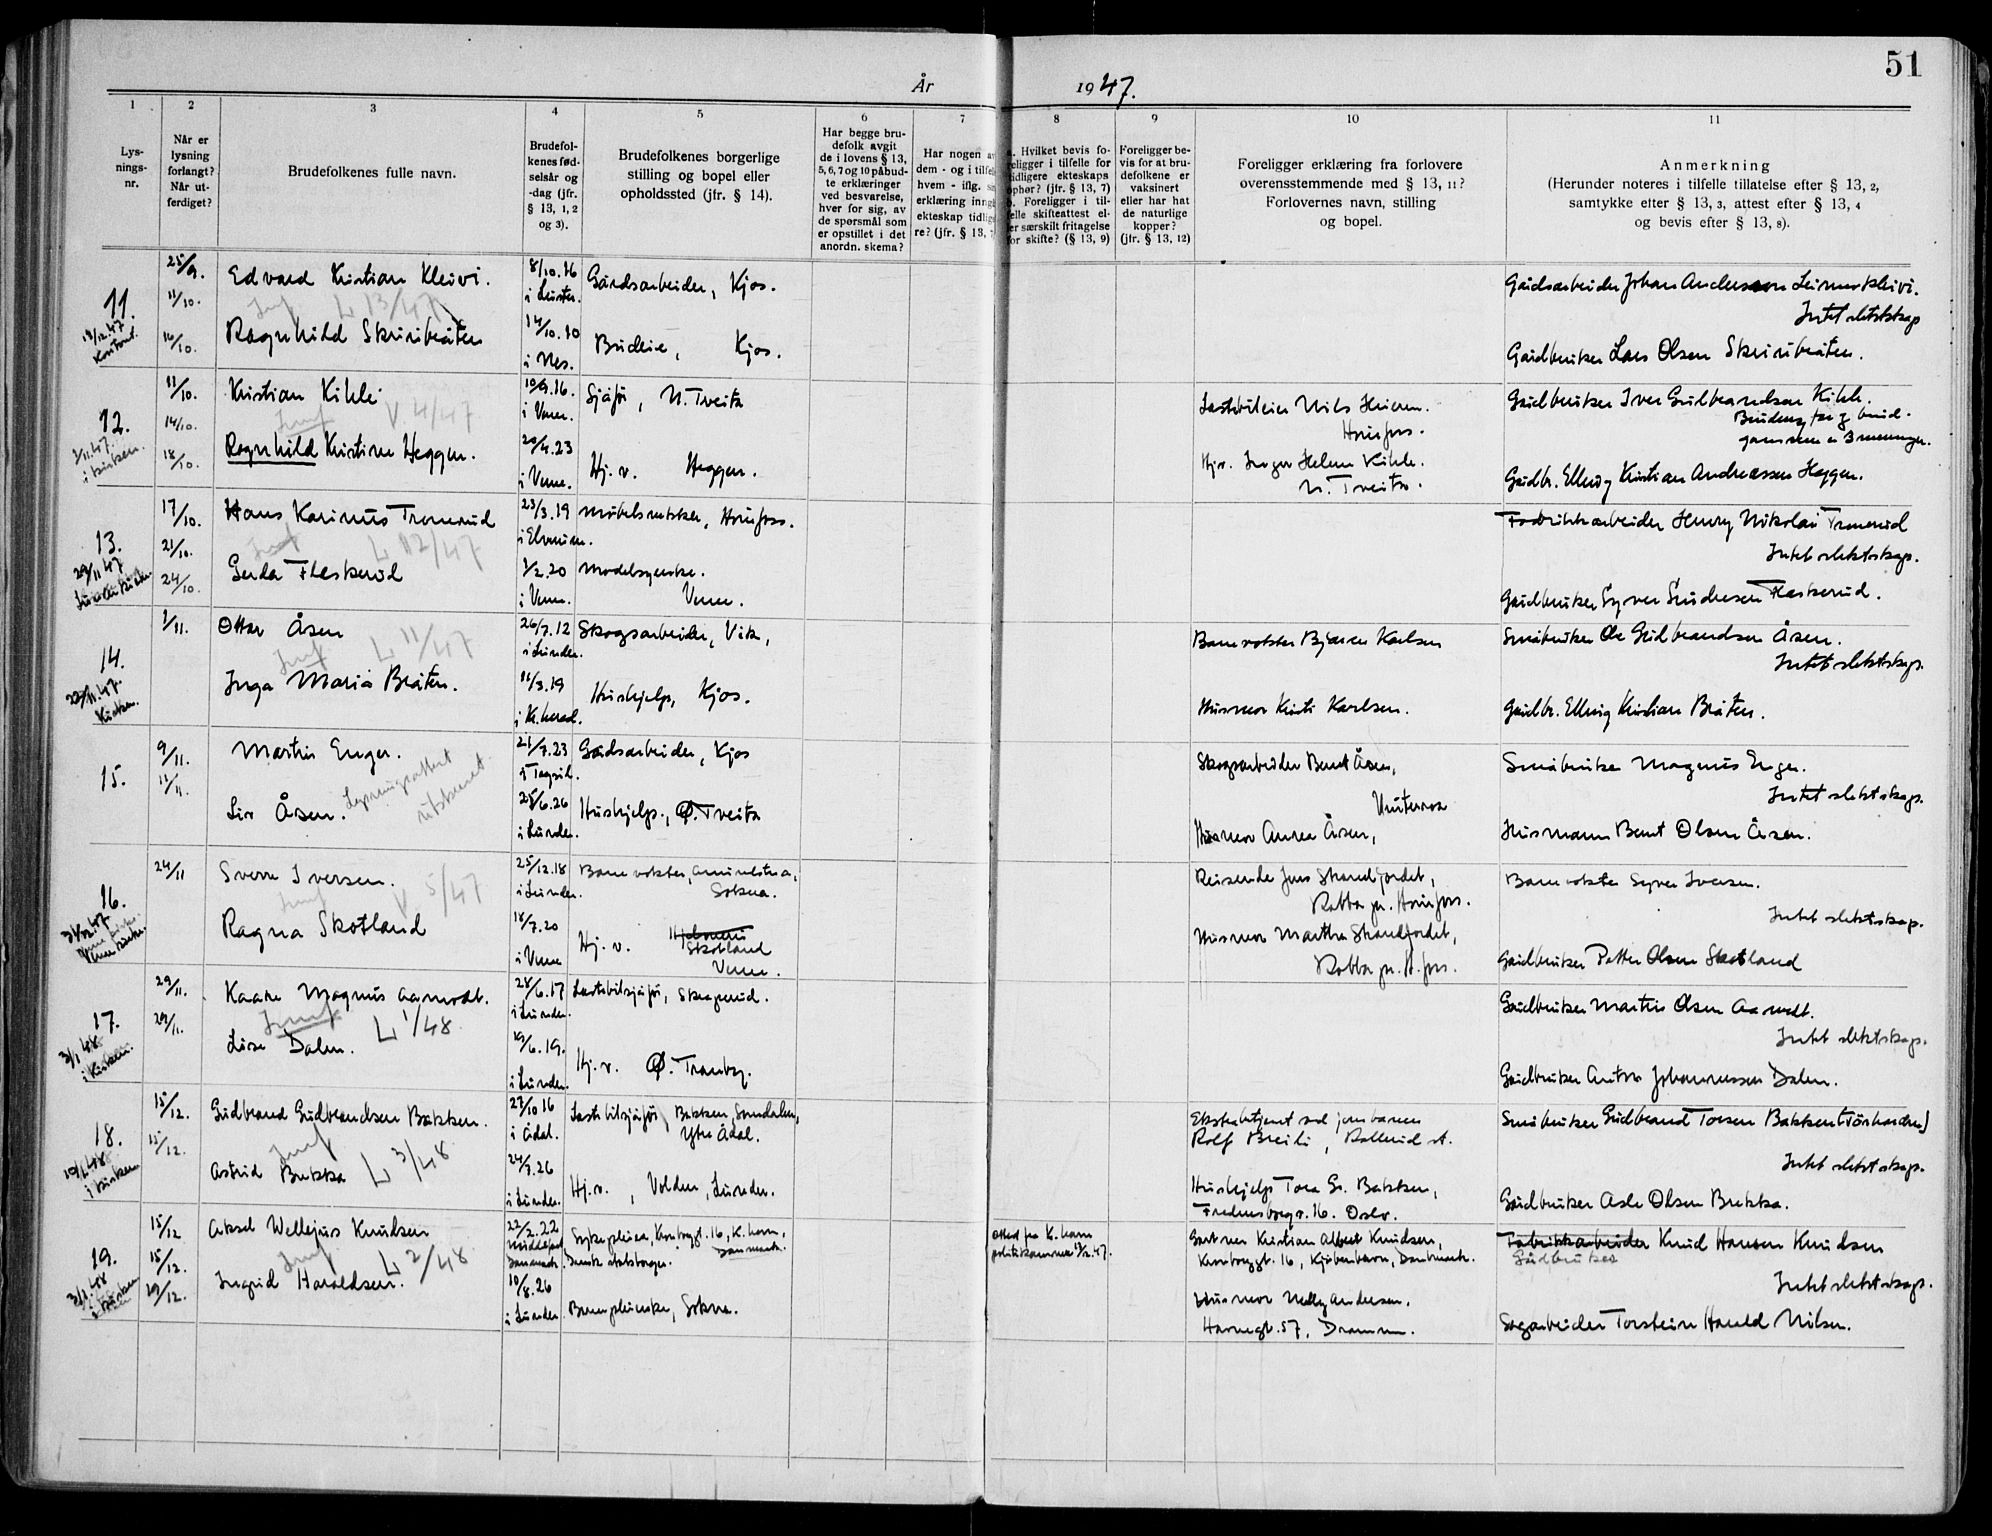 51
År 1947.
1 2 3 4 5 6 7 8 9 10 11
Lys-
nings-
nr.
Når er
lysning
forlangt?
Når ut-
ferdiget?
Brudefolkenes fulle navn.
Brudefol-
kenes fød-
selsår og
-dag (jfr.
§ 13, 1, 2
og 3).
Brudefolkenes borgerlige
stilling og bopel eller
opholdssted (jfr. § 14).
Har begge bru-
defolk avgit
de i lovens § 13,
5, 6, 7 og 10 påbud-
te erklæringer
ved besvarelse,
hver for sig, av
de spørsmål som
er opstillet i det
anordn. skema?
Har nogen a
dem - og i tilfel
hvem - iflg. si
erklæring inng
ekteskap tidlig
re? (jfr. § 13, 7
a. Hvilket bevis fo-
religger i tilfelle for
tidligere ekteskaps
ophør? (jfr. § 13, 7)
b. Foreligger i til-
felle skifteattest el-
er særskilt fritagelse
for skifte? (§ 13, 9)
Foreligger be-
vis for at bru-
defolkene er
vaksinert
eller har hat
de naturlige
kopper?
(jfr. § 13, 12)
Foreligger erklæring fra forlovere
overensstemmende med § 13, 11?
Forlovernes navn, stilling
og bopel.
Anmerkning
(Herunder noteres i tilfelle tillatelse efter § 13, 2,
samtykke etter § 13, 3, attest efter § 13, 4
og bevis efter § 13, 8).
11.
13/12.47
Kontoret.
25/9.
11/10.
16/10.
Edvard Kristian Kleivi.
L 13/47
Ragnhild Skriribråten
8/10.16
14/10.20
i Nes.
Gårdsarbeider, Kjos.
Budeie, Kjos.
Gårdsarbeider Johan Anderson Kleivi.
Intet slektskap
Gårdbruker Lars Olsen Skriribråten.
12.
1/11.47.
i kirken.
11/10.
14/10.
18/10.
Kristian Kihle
V 4/47
Ragnhild Kristine Heggen.
10/9.16.
20/4.23
Sjåfør, N. Tveita
Hj. v. Heggen.
Lastebileier Nils
Hønefoss.
Hjv. Inger Helene Kihle.
N. Tveita.
Gårdbruker Iver Gulbrandsen Kihle.
Gårdbr. Ellevig Kristian Andreassen Heggen.
13.
29/11 47
17/10.
21/10.
24/10.
Hans Karinus Tronrud
L 12/47
Gerda Fleskerud
23/3.19
1/2.20
Møbelsnekker, Hønefoss.
Modelsyerske.
Fabrikkarbeider Henry Nikolai Tronrud
Intet slektskap.
Gårdbruker Syver Fleskerud.
14.
22/11.47.
Kirken.
1/11.
Ottar Åsen
L 11/47
Inga Maria Bråten.
26/7.12
i Lunder.
11/3.19
i Kr.herad.
Skogsarbeider, Vik,
Hushjelp, Kjos.
Banevokter Bjarne Karlsen
Husmor Kirsti Karlsen.
Småbruker Ole Gulbrandsen Åsen.
Intet slektskap.
Gårdbr. Ellevig Kristian Bråten.
15.
9/11.
11/11.
Martin Enger.
Liv Åsen.
Lysningsattest
utskrevet.
21/7.23
25/6.26
i Lunder.
Gårdsarbeider, Kjos
Hushjelp., Ø. Tveita
Skogsarbeider Bernt Åsen,
Husmor Anna Åsen,
Småbruker Magnus Enger.
Intet slektskap.
Husmann Bernt Olsen Åsen.
16.
24/11
Sverre Iversen.
V 5/47
Ragna Skotland
25/12.18
i Lunder.
18/7.20
Banevokter,
Sokna.
Hj. v.
Skotland
Reisende Jens Strandjordet,
Rabba pr. Hønefoss.
Husmor Martha Strandjordet,
Rabba pr. H.foss.
Banevokter Syver Iversen.
Intet slektskap.
Gårdbruker Petter Olsen Skotland
17.
3/1 48
i kirken.
29/11.
29/11.
Kaare Magnus Aamodt.
L 1/48
Lise Dalen.
28/6.17
i Lunder.
19/6.19.
i Lunder.
Lastebilsjåfør, Skagerud.
Hj. v. Ø. Tranby.
Gårdbruker Martin Olsen Aamodt.
Intet slektskap.
Gårdbruker Anton Johannessen Dalen.
18.
10/1.48.
i kirken
15/12.
15/12.
Gudbrand Gudbrandsen Bakken.
L 3/48
Astrid Brekka
27/10 16
i Ådal.
24/9.26
i Lunder.
Lastebilsjåfør, Bakken, Somdalen,
Ytre Ådal.
Hj.v., Volden, Lunder.
Ekstrabetjent ved jernbanen
Rolf Breili,
Hushjelp Tora G. Bakken,
Fredensborgv. 16. Oslo.
Småbruker Gudbrand Torsen Bakken
Intet slektskap.
Gårdbruker Asle Olsen Brekka.
19.
3/1.48
i kirken
15/12
15/12.
19/12.
Aksel Wellejus Knudsen
L 2/48
Ingrid Haraldsen.
22/2.22
Danmark.
10/8.26
i Lunder
Sykepleier, Kronbrygt. 16, K.havn,
Danmark.
Dansk statsborger.
Barnepleierske, Sokna.
Attest fra K.havn
Gartner Kristian Albert Knudsen,
Kronbryggt. 16, Kjøbenhavn, Danmark.
Husmor Nelly Andersen,
Havnegt. 57, Drammen.
Fabrikkarbeider Knud Hansen Knudsen
Gårdbruker
Intet slektskap.
Sagarbeider Torstein Harald Nilsen.